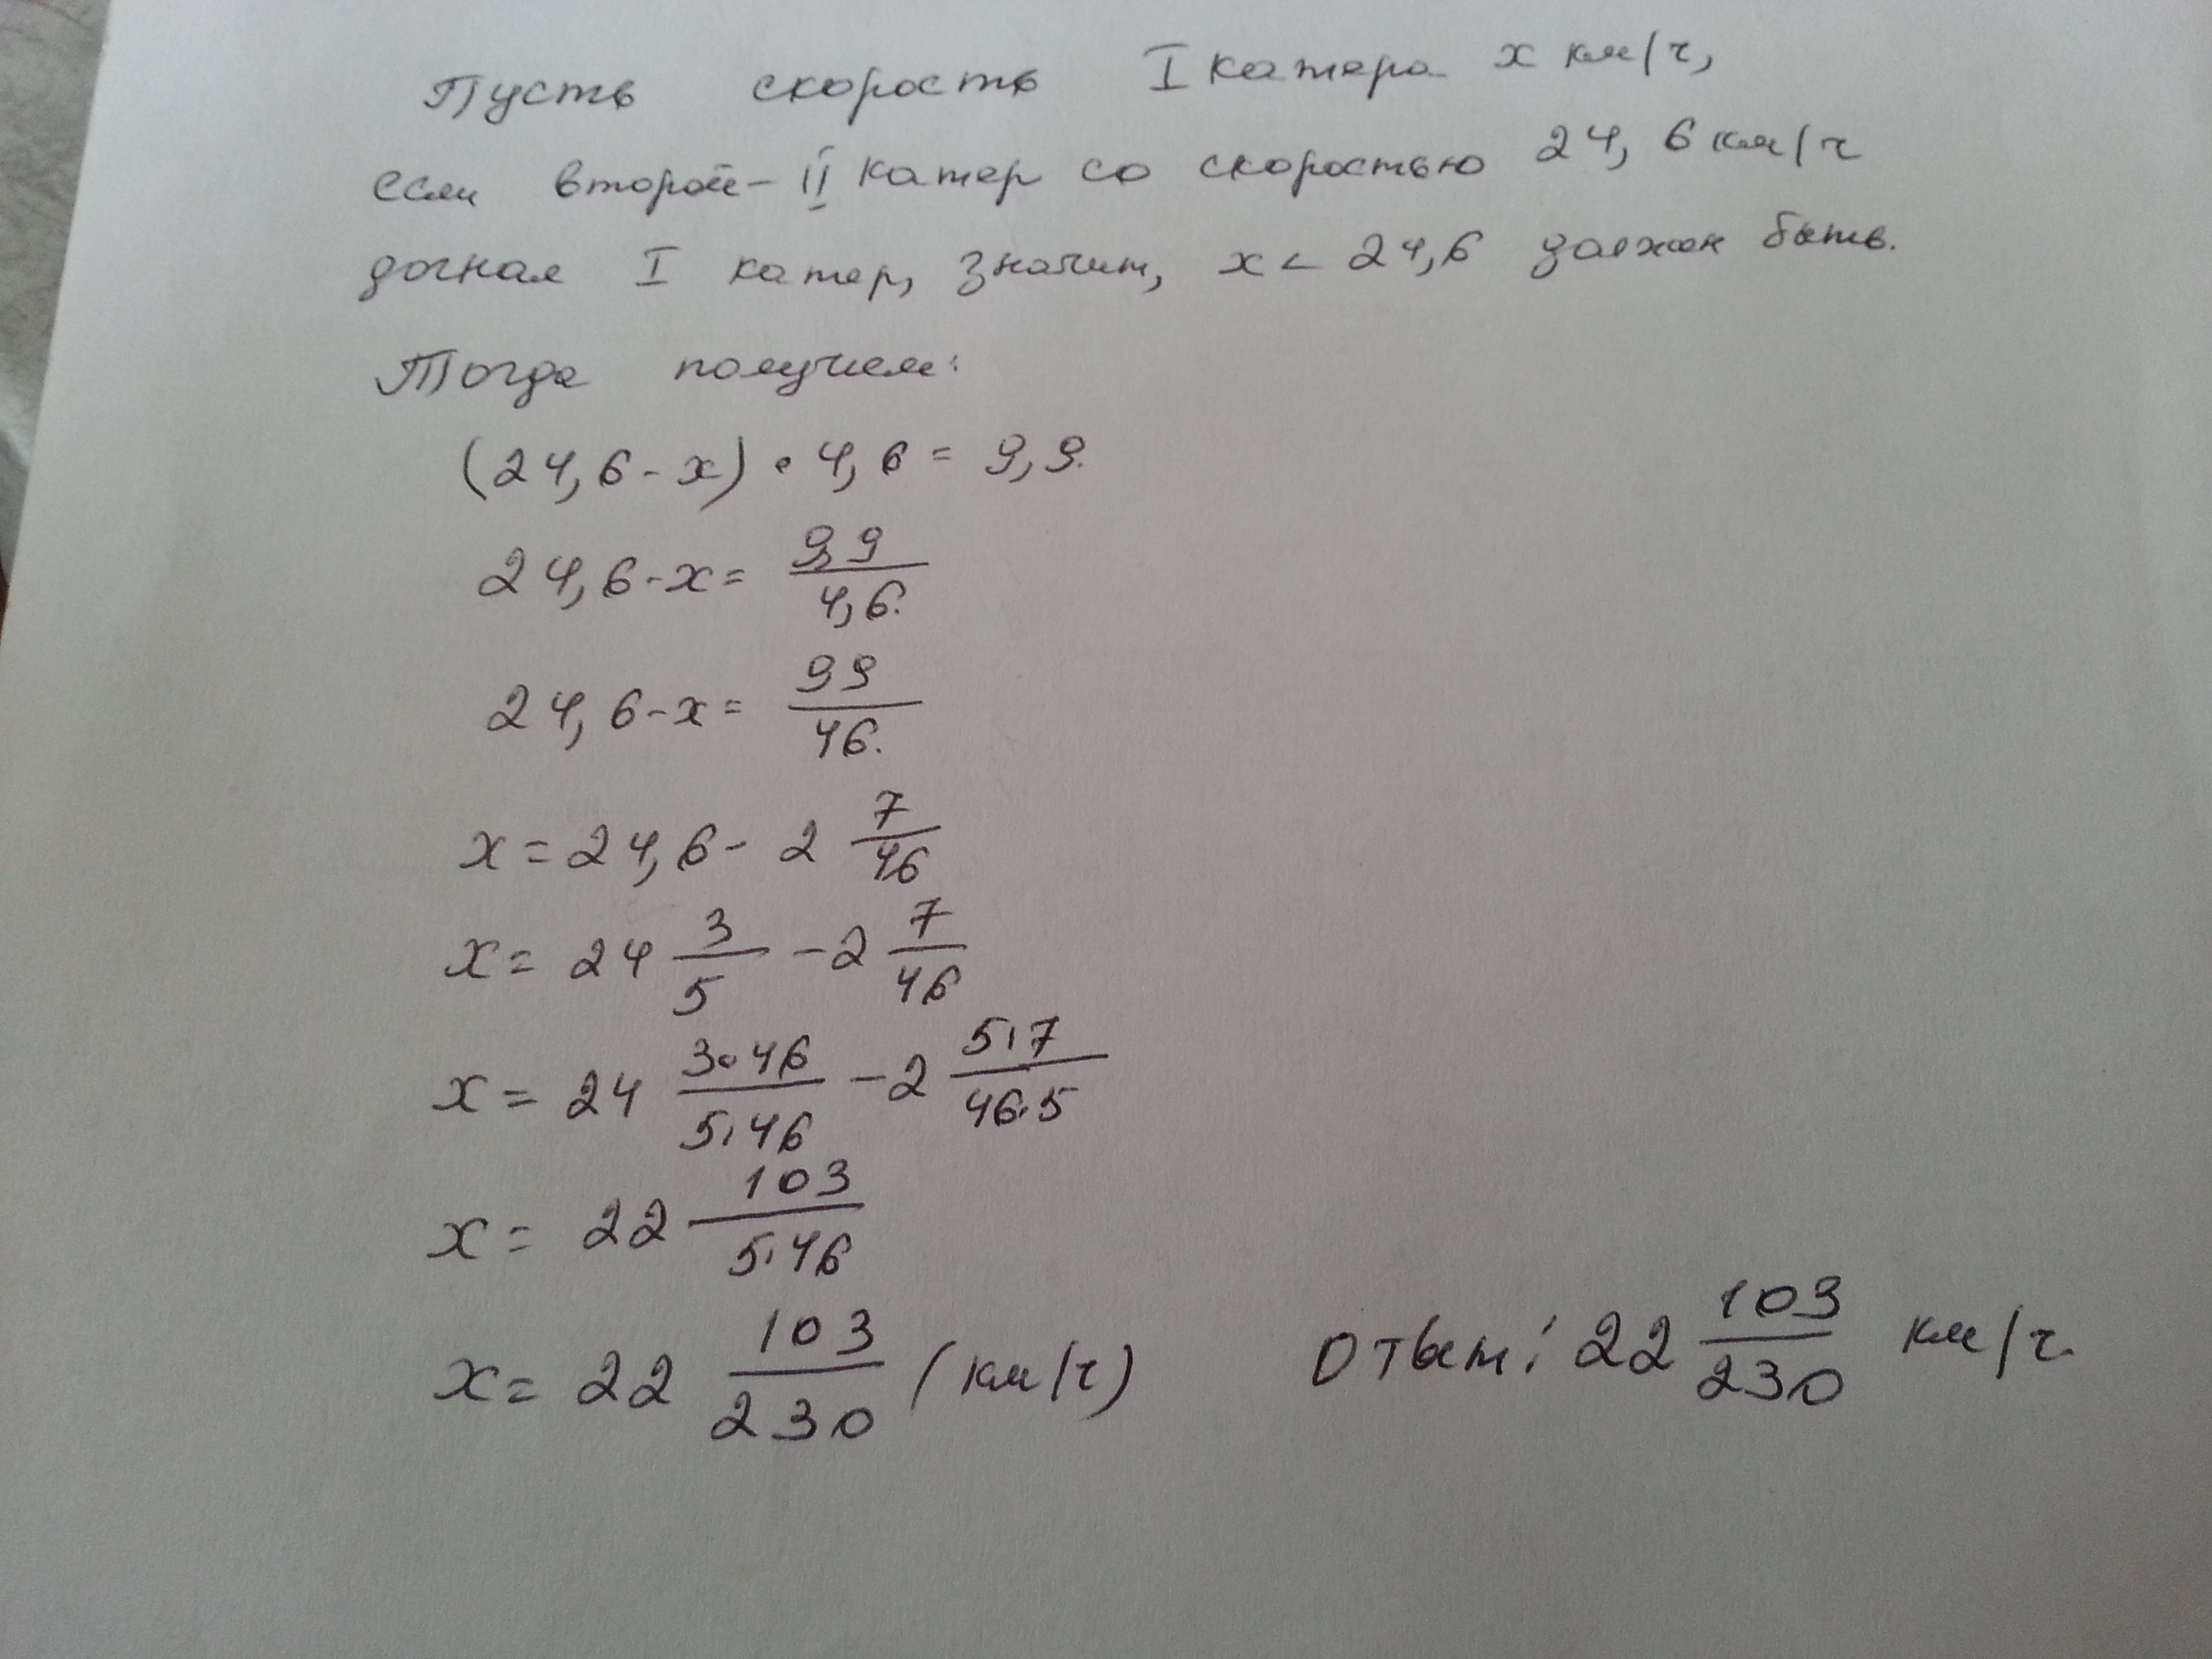 Пусть скорость I катера x км/ч,
если второй - II катер со скоростью 24,6 км/ч
догнал I катер, значит, x < 24,6 должен быть.
Тогда получаем:
(24,6 - x) • 4,6 = 9,9.
24,6 - x = 9,9/4,6.
24,6 - x = 99/46.
x = 24,6 - 2 7/46
x = 24 3/5 - 2 7/46
x = 24 3•46/5•46 - 2 5•7/46•5
x = 22 103/5•46
x = 22 103/230 (км/ч)
Ответ: 22 103/230 км/ч.